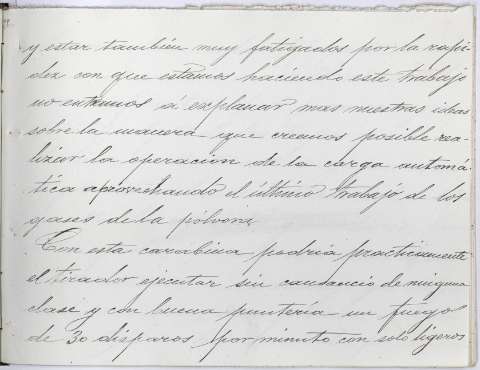 y estar tambien muy fatigados por la rapi-
dez con que estamos haciendo este trabajo
no entramos á explanar mas nuestras ideas
sobre la manera que creemos posible rea-
lizar la operacion de la carga automá-
tica aprovechando el último trabajo de los
gases de la pólvora.
Con esta carabina podria practicamente
el tirador ejecutar sin cansancio de ninguna
clase y con buena puntería un fuego
de 30 disparos por minuto con solo ligeros